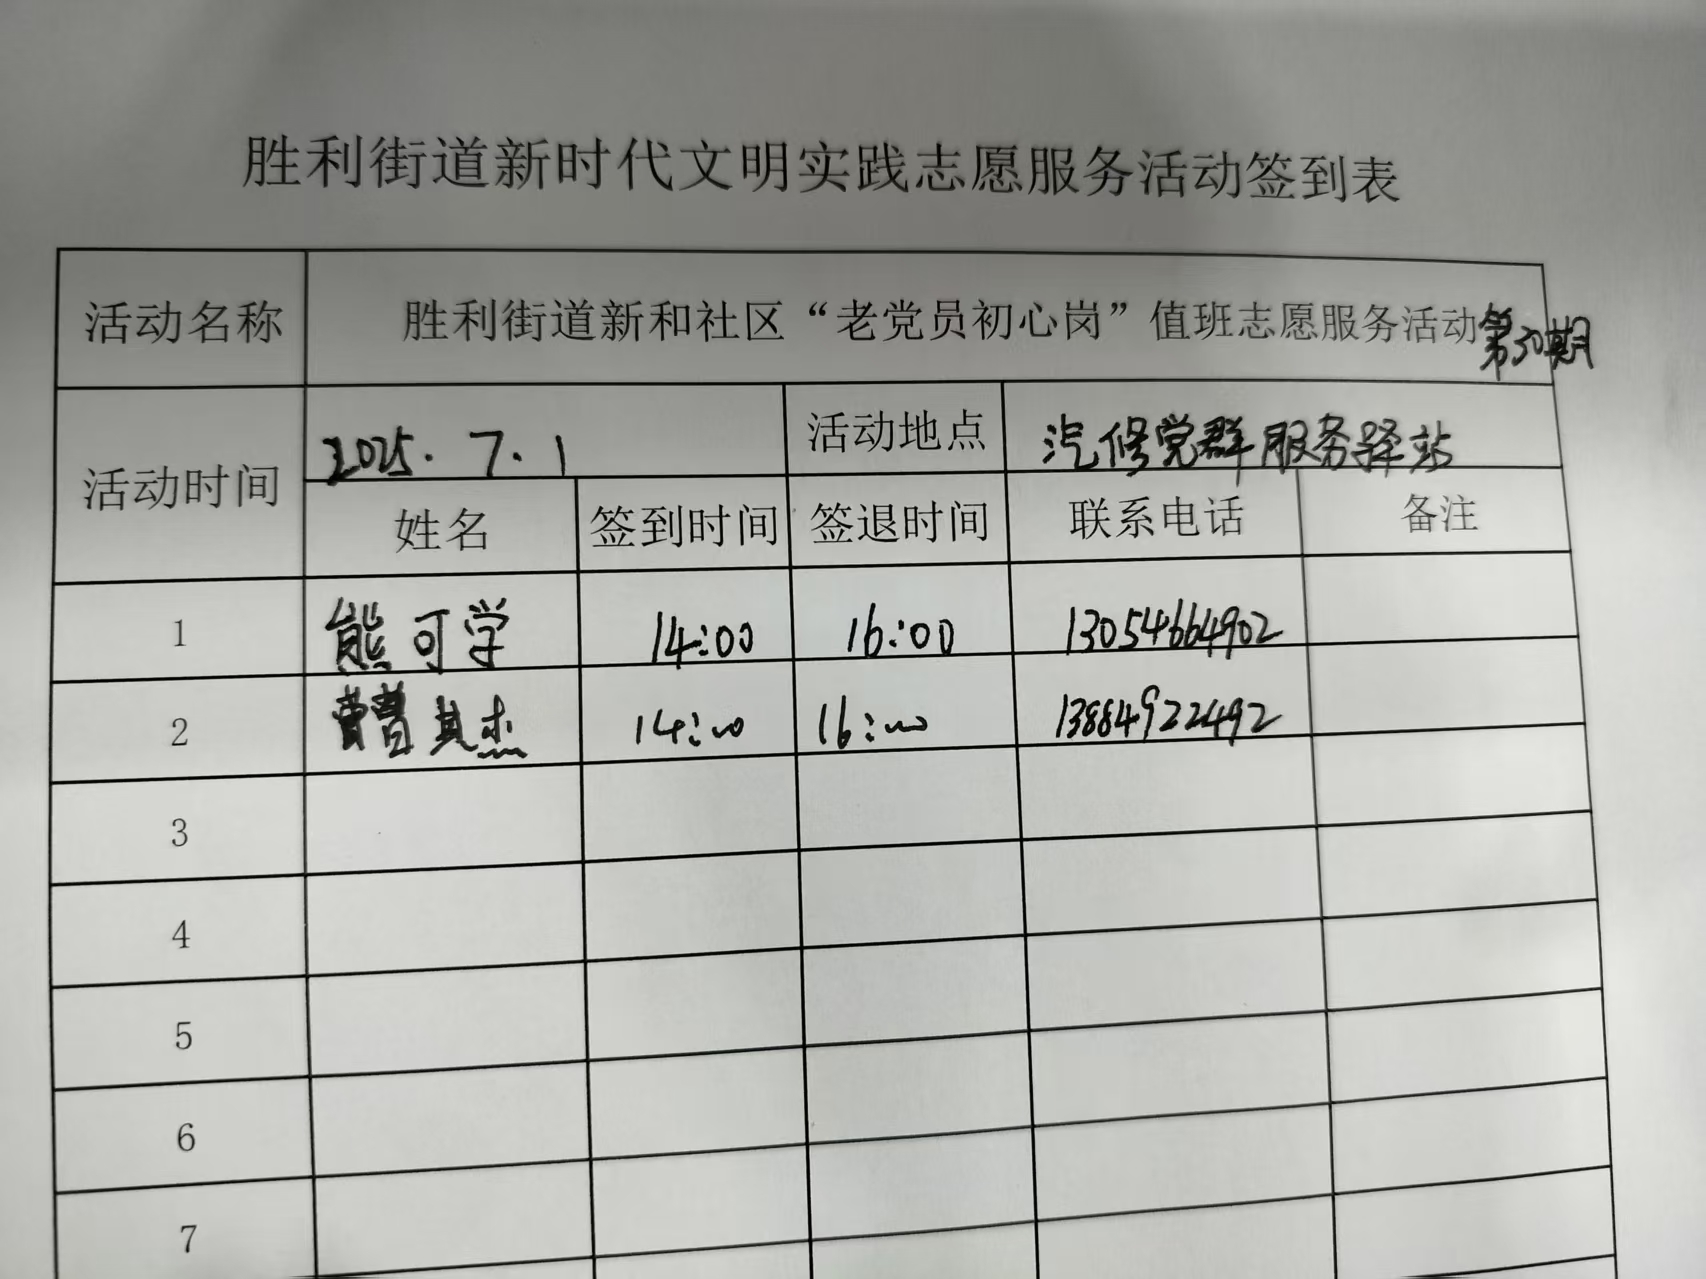 胜利街道新时代文明实践志愿服务活动签到表
活动名称 胜利街道新和社区“老党员初心岗”值班志愿服务活动第30期
活动时间 2025.7.1 活动地点 汽修党群服务驿站
姓名 签到时间 签退时间 联系电话 备注
1 熊可学 14:00 16:00 13054664902
2 曹其杰 14:00 16:00 13884922492
3
4
5
6
7